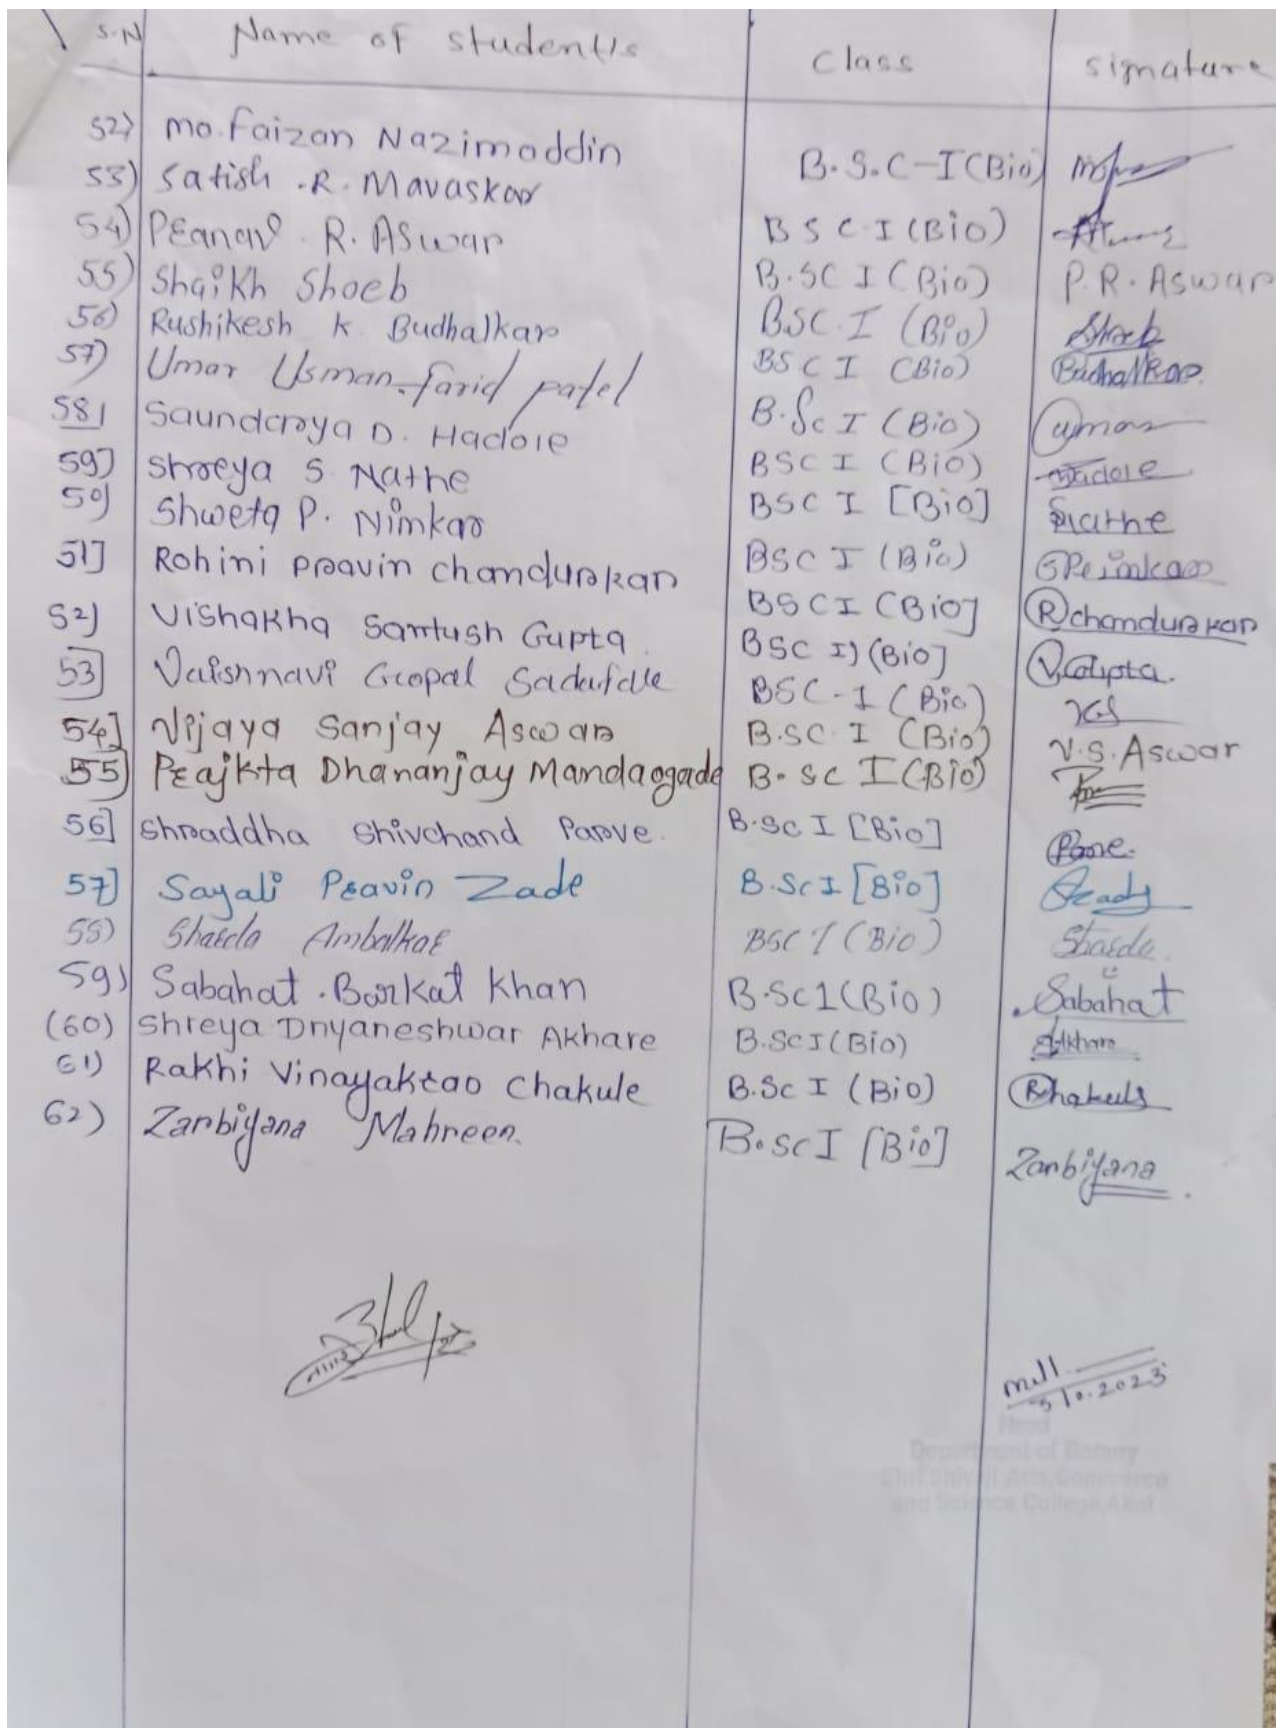 S.N Name of students Class Signature
52) Mo. Faizan Nazimoddin B.S.C-I (Bio)
53) Satish .R. Mavaskar BSC-I (Bio)
54) Pranav R. Aswar B.SC I (Bio) P.R. Aswar
55) Shaikh Shoeb BSC.I (Bio) Shoeb
56) Rushikesh K. Budhalkar BSC I (Bio) Budhalkar
57) Umar Usman farid patel B.Sc I (Bio) Umar
58) Saundarya D. Hadole BSC I (Bio) Hadole
59] Shreya S Nathe BSC I [Bio] Nathe
50] Shweta P. Nimkar BSC I (Bio)
51] Rohini Pravin Chandurkar BSC I (Bio] R chandurkar
52] Vishakha Santush Gupta. BSC I) (Bio] V. Gupta.
53] Vaishnavi Gopal Sadafale BSC-I (Bio)
54] Vijaya Sanjay Aswar B.SC I (Bio) V.S. Aswar
55) Prajkta Dhananjay Mandaogade B.Sc I (Bio)
56] Shraddha Shivchand Parve. B.Sc I [Bio]
57] Sayali Pravin Zade B.Sc I [Bio]
58) Sharda Ambalkar BSC I (Bio) Sharda
59) Sabahat .Barkat Khan B.Sc1 (Bio) Sabahat
(60) Shreya Dnyaneshwar Akhare B.Sc I (Bio) Akhare
61) Rakhi Vinayakrao Chakule B.Sc I (Bio)
62) Zanbiyana Mahreen. B.Sc I [Bio] Zanbiyana
10.2023
Head
Department of Botany
Shri Shivaji Arts, Commerce
and Science College, Akot